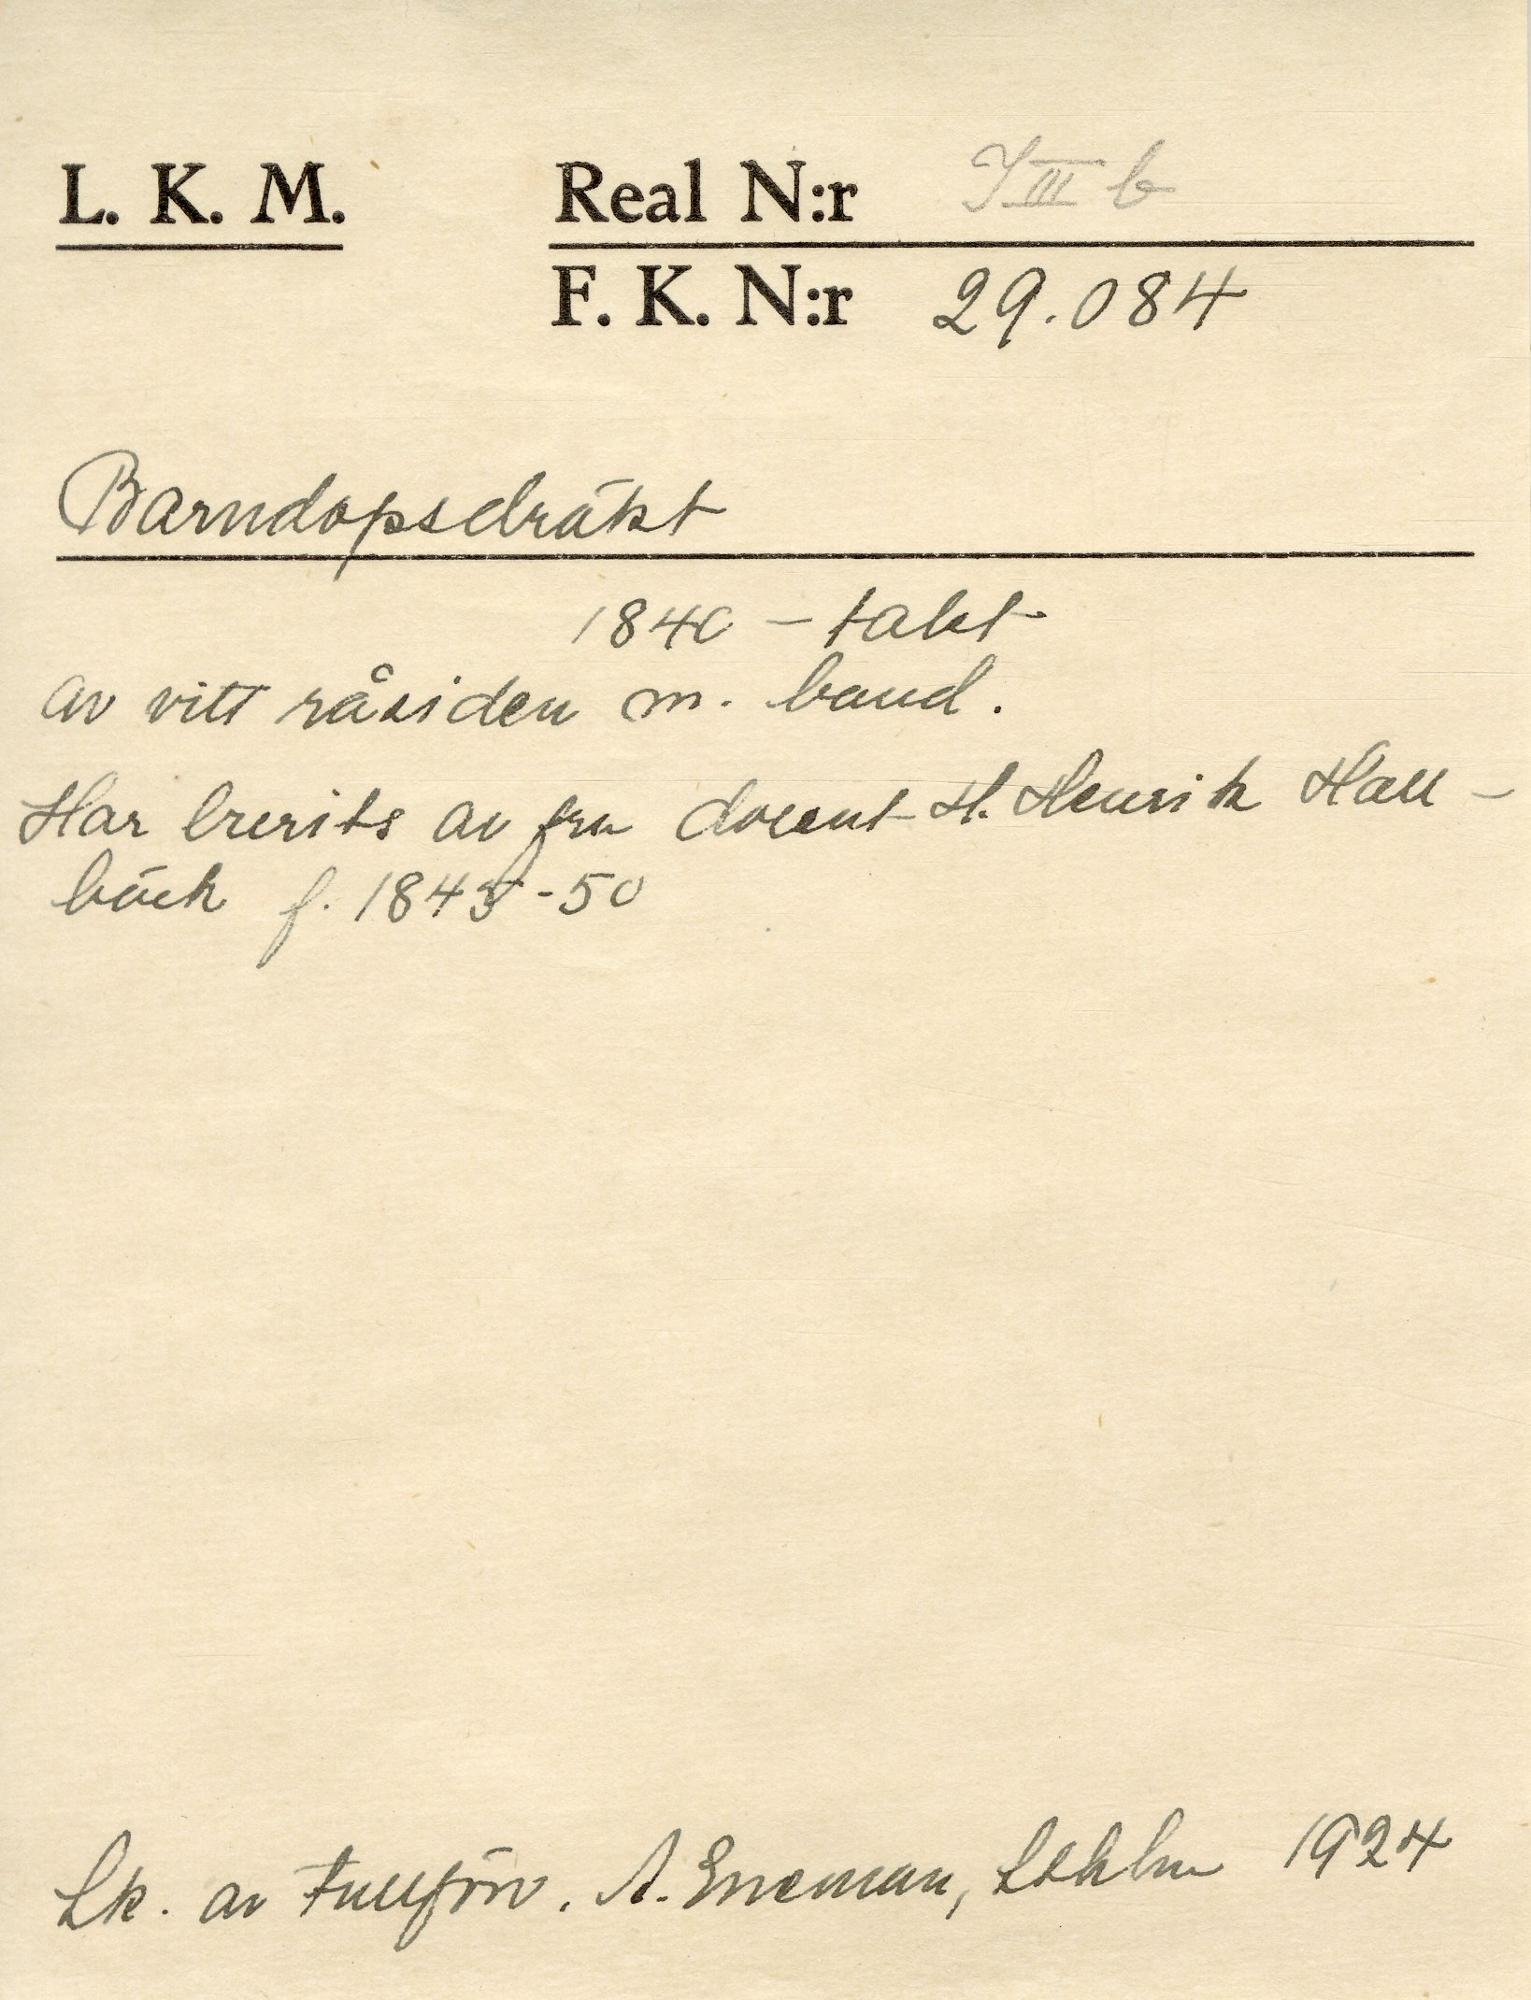 L. K. M.
Real N:r I III b
F. K. N:r 29.084
Barndopsdräkt
1840 - talet
av vitt råsiden m. band.
Har burits av fru docent H. Henrik Hall-
bäck f. 1845-50
Sk. av Tullförv. A. Eneman, Sthlm 1924